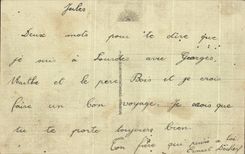 Jules
Deux mots pour te dire que
je suis à Lourdes avec Georges,
Marthe et le père Bois et je crois
faire un bon voyage. je crois que
tu te porte toujours bien.
Ton frère qui pense à toi
Ernest